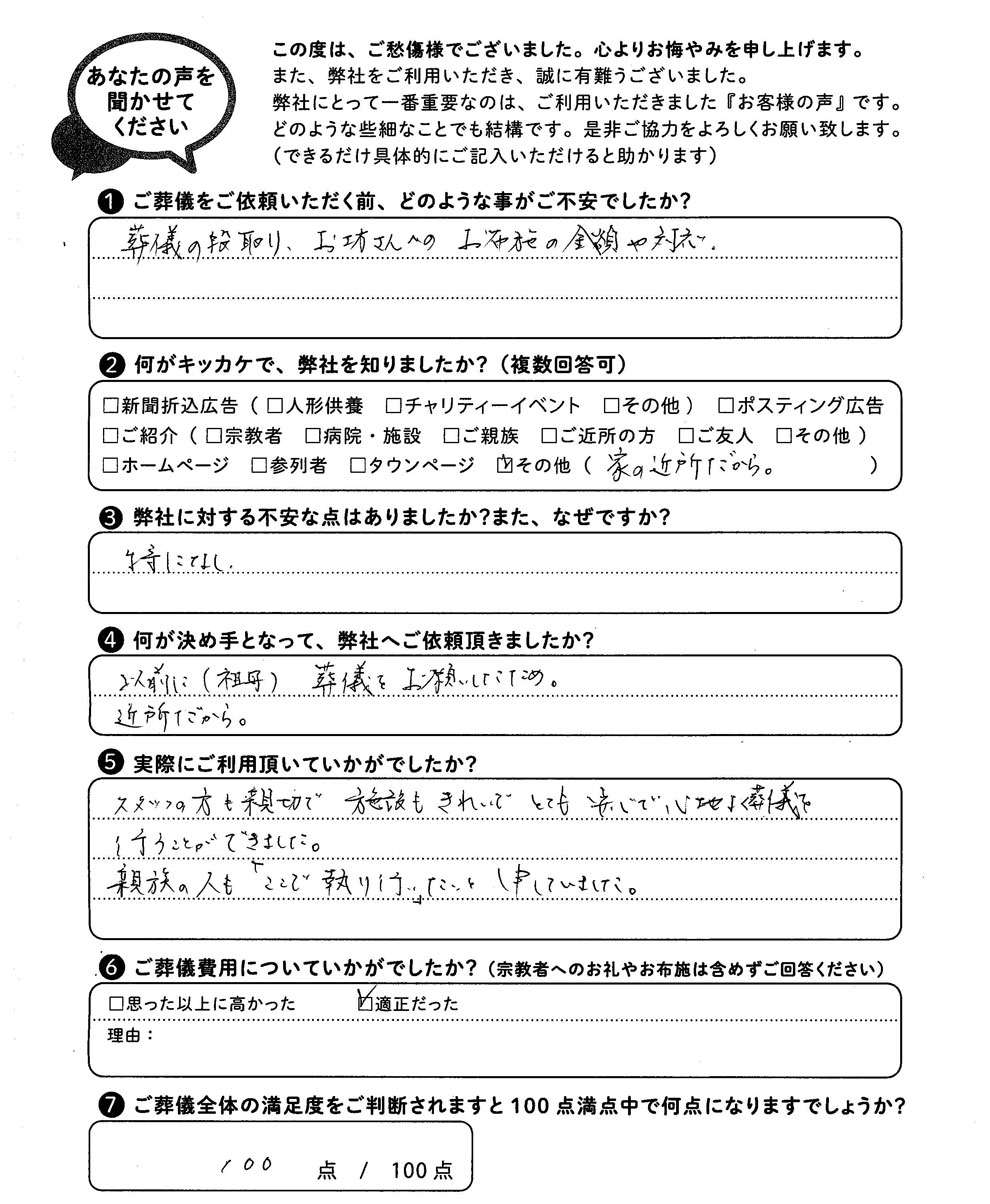 あなたの声を
聞かせて
ください
この度は、ご愁傷様でございました。心よりお悔やみを申し上げます。
また、弊社をご利用いただき、誠に有難うございました。
弊社にとって一番重要なのは、ご利用いただきました『お客様の声』です。
どのような些細なことでも結構です。是非ご協力をよろしくお願い致します。
（できるだけ具体的にご記入いただけると助かります）
❶ ご葬儀をご依頼いただく前、どのような事がご不安でしたか?
葬儀の段取り、お坊さんへの お布施の金額や対応.
❷ 何がキッカケで、弊社を知りましたか?（複数回答可）
□新聞折込広告（□人形供養 □チャリティーイベント □その他） □ポスティング広告
□ご紹介（□宗教者 □病院・施設 □ご親族 □ご近所の方 □ご友人 □その他）
□ホームページ □参列者 □タウンページ ☑その他（家の近所だから。）
❸ 弊社に対する不安な点はありましたか?また、なぜですか?
特になし.
❹ 何が決め手となって、弊社へご依頼頂きましたか?
以前に（祖母） 葬儀を お願いしたため。
近所だから。
❺ 実際にご利用頂いていかがでしたか?
スタッフの方も親切で 施設も きれいで とても 安心で心地よく葬儀を
行うことができました。
親族の人も「ここで 執り行いたい」と 申していました。
❻ ご葬儀費用についていかがでしたか?（宗教者へのお礼やお布施は含めずご回答ください）
□思った以上に高かった ☑適正だった
理由：
❼ ご葬儀全体の満足度をご判断されますと100点満点中で何点になりますでしょうか?
100 点 / 100点